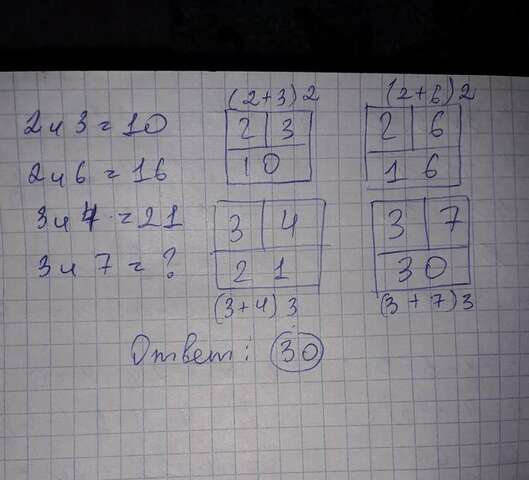 2 и 3 = 10
2 и 6 = 16
3 и 4 = 21
3 и 7 = ?
(2+3)2
2 3
10
(2+6)2
2 6
16
3 4
21
(3+4)3
3 7
30
(3+7)3
Ответ: 30